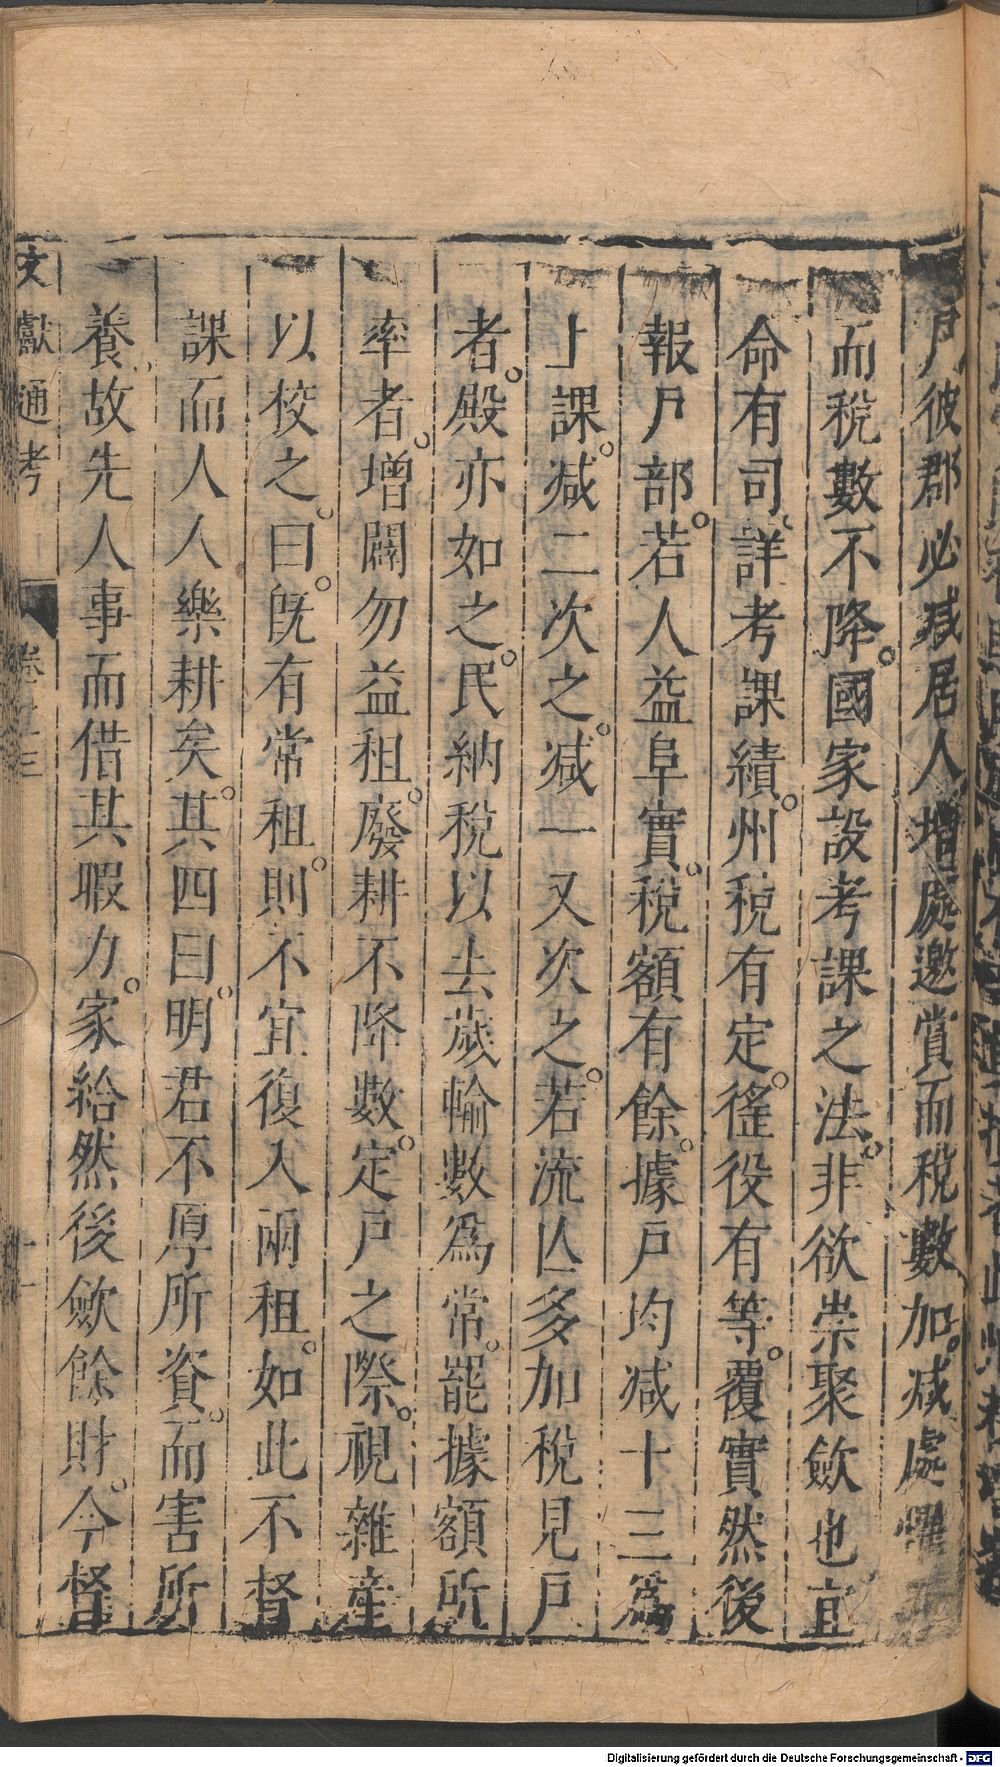 戶彼郡必减居人增處邀賞而稅數加。减處懼
而稅數不降。國家設考課之法。非欲崇聚歛也宜
命有司詳考課績。州稅有定。徭役有等。覆實然後
報戶部。若人益阜實。稅額有餘。據戶均减十三爲
上課。减二次之。减一又次之。若流亾多加稅見戶
者。殿亦如之。民納稅以去歲輸數爲常。罷據額所
率者。增闢勿益租。廢耕不降數。定戶之際。視雜產
以校之。曰。旣有常租。則不宜復入兩租。如此不督
課而人人樂耕矣。其四曰。明君不厚所資。而害所
養。故先人事而借其暇力。家給然後歛餘財。今督
文獻通考 卷之三 十一
Digitalisierung gefördert durch die Deutsche Forschungsgemeinschaft - DFG